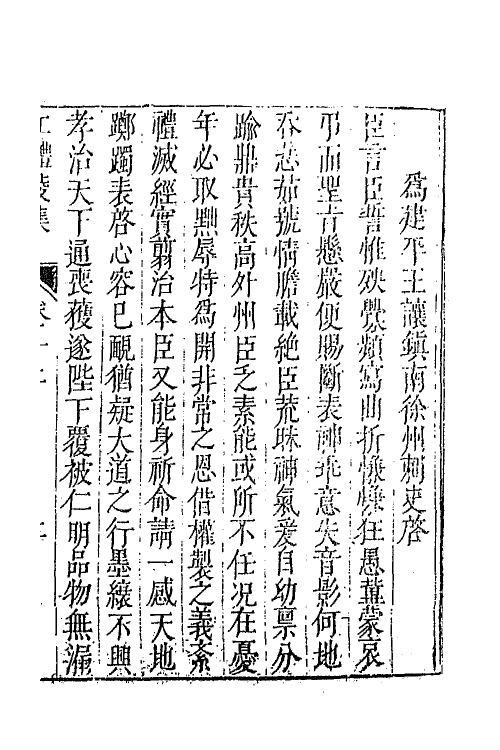 爲建平王讓鎮南徐州刺史啓
臣言臣誓惟殃釁頻寫曲折慺慺狂愚冀蒙哀
弔而聖旨懸嚴便賜斷表神乖意失音影何地
吞悲茹號情膽載絶臣荒昧神氣爰自幼禀分
踰鼎貴秩高外州臣乏素能或所不任况在憂
年必取黜辱特爲開非常之恩借權製之義紊
禮滅經實翦治本臣又能身祈命請一感天地
躑躅表啓心容已靦猶疑大道之行墨縗不興
孝治天下通喪獲遂陛下覆被仁明品物無漏
醴陵集 卷十